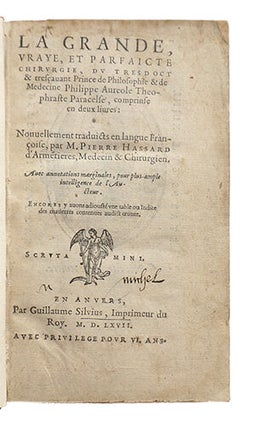 LA GRANDE,
VRAYE, ET PARFAICTE
CHIRVRGIE, DV TRESDOCT
& tresçauant Prince de Philosophie & de
Medecine Philippe Aureole Theo-
phraste Paracelse, comprinse
en deux liures:
*
Nouuellement traduicts en langue Fran-
çoise, par M. PIERRE HASSARD
d'Armetieres, Medecin & Chirurgien.
Auec annotations marginales, pour plus ample
intelligence de l'Au-
cteur.
ENCORES y auons adiousté vne table ou Indice
des matieres contenues audict œuure.
SCRVTA MINI.
michel
EN ANVERS,
Par Guillaume Siluius, Imprimeur du
Roy. M. D. LXVII.
AVEC PRIVILEGE POVR VI. ANS.